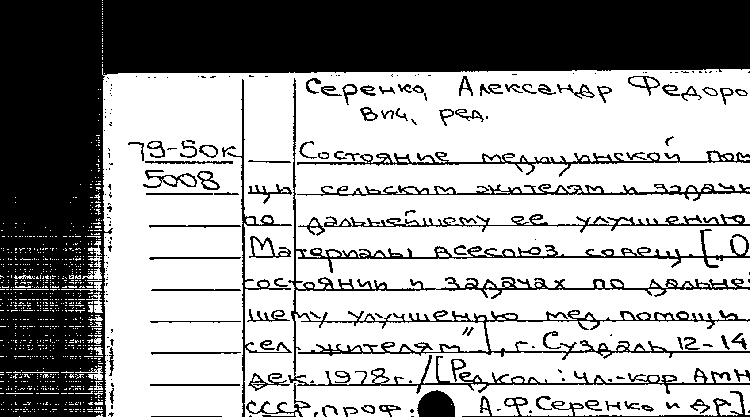 Серенко, Александр Федоро
вич, ред.
79-50к
5008
Состояние медицинской пом
щи сельским жителям и задачи
по дальнейшему ее улучшению
Материалы всесоюз. совещ. ["О
состоянии и задачах по дальней
шему улучшению мед. помощи
сел. жителям"], г. Суздаль, 12-14
дек. 1978г. / [Редкол.: чл.-кор АМН
СССР, проф. А.Ф.Серенко и др]